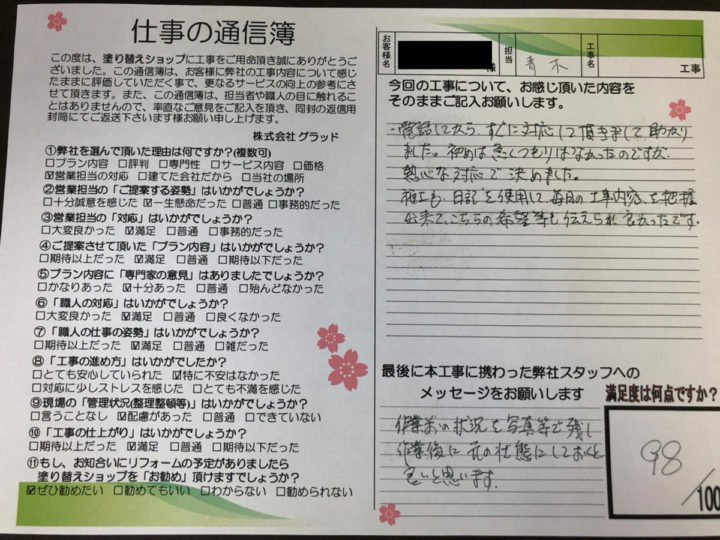 仕事の通信簿
この度は、塗り替えショップに工事をご用命頂き誠にありがとうご
ざいました。この通信簿は、お客様に弊社の工事内容について感じ
たままに評価していただく事で、更なるサービスの向上の参考にさ
せて頂きます。また、この通信簿は、担当者や職人の目に触れるこ
とはありませんので、率直なご意見をご記入を頂き、同封の返信用
封筒にてご返送下さいます様お願い申し上げます。
株式会社 グラッド
①弊社を選んで頂いた理由は何ですか?(複数可)
□プラン内容 □評判 □専門性 □サービス内容 □価格
☑営業担当の対応 □建てた会社だから □当社の場所
②営業担当の「ご提案する姿勢」はいかがでしょうか?
□十分誠意を感じた ☑一生懸命だった □普通 □事務的だった
③営業担当の「対応」はいかがでしょうか?
□大変良かった ☑満足 □普通 □事務的だった
④ご提案させて頂いた「プラン内容」はいかがでしょうか?
□期待以上だった ☑満足 □普通 □期待以下だった
⑤プラン内容に「専門家の意見」はありましたでしょうか?
□かなりあった ☑十分あった □普通 □殆んどなかった
⑥「職人の対応」はいかがでしょうか?
□大変良かった ☑満足 □普通 □良くなかった
⑦「職人の仕事の姿勢」はいかがでしょうか?
□期待以上だった ☑満足 □普通 □雑だった
⑧「工事の進め方」はいかがでしたか?
□とても安心していられた ☑特に不安はなかった
□対応に少しストレスを感じた □とても不満を感じた
⑨現場の「管理状況(整理整頓等)」はいかがでしょうか?
□言うことなし ☑配慮があった □普通 □できていない
⑩「工事の仕上がり」はいかがでしょうか?
□期待以上だった ☑満足 □普通 □期待以下だった
⑪もし、お知合いにリフォームの予定がありましたら
塗り替えショップを「お勧め」頂けますでしょうか?
☑ぜひ勧めたい □勧めてもいい □わからない □勧められない
お客様名 様 担当 青木 工事名 工事
今回の工事について、お感じ頂いた内容を
そのままご記入お願いします。
・電話してから、すぐに対応して頂きまして助かり
ました。初めは悉くつもりはなかったのですが、
熱心な対応で決めました。
施工も、日記を使用して毎日の工事内容を把握
出来て、こちらの希望等も伝えられ良かったです。
最後に本工事に携わった弊社スタッフへの
メッセージをお願いします
作業前の状況を写真等で残し
作業後に元の状態にしておくと
良いと思います。
満足度は何点ですか?
98
/100